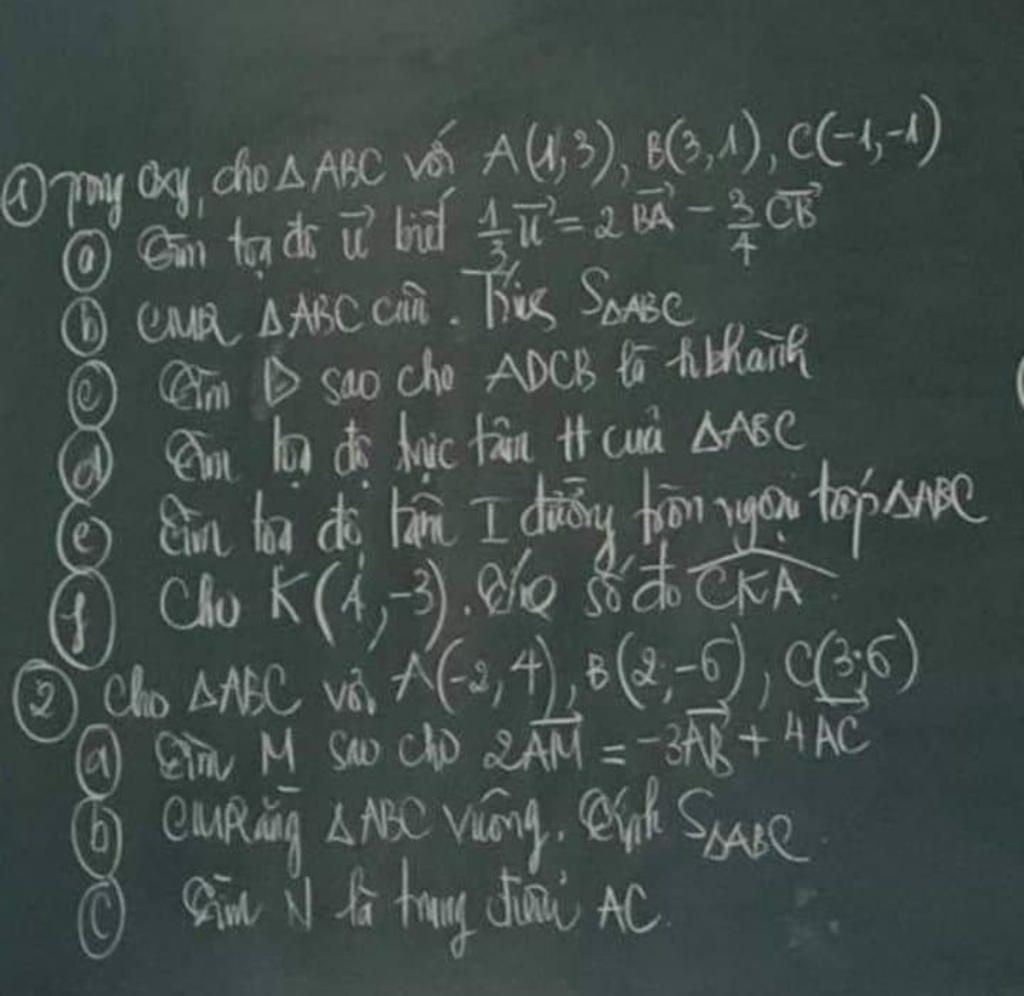 ① Trong Oxy, cho ΔABC với A(1,3), B(3,1), C(-1,-1)
ⓐ Tìm tọa độ u⃗ biết 1/3 u⃗ = 2 BA⃗ - 3/4 CB⃗
ⓑ CMR ΔABC cân. Tính SΔABC
ⓒ Tìm D sao cho ADCB là h bhành
ⓓ Tìm tọa độ trực tâm H của ΔABC
ⓔ Tìm tọa độ tâm I đường tròn ngoại tiếp ΔABC
ⓕ Cho K(1,-3). số đo CKA
② Cho ΔABC với A(-2,4), B(2,-6), C(3;6)
ⓐ Tìm M sao cho 2AM⃗ = -3AB⃗ + 4AC⃗
ⓑ CMRằng ΔABC vuông. Tính SΔABC.
ⓒ Tìm N là trung điểm AC.